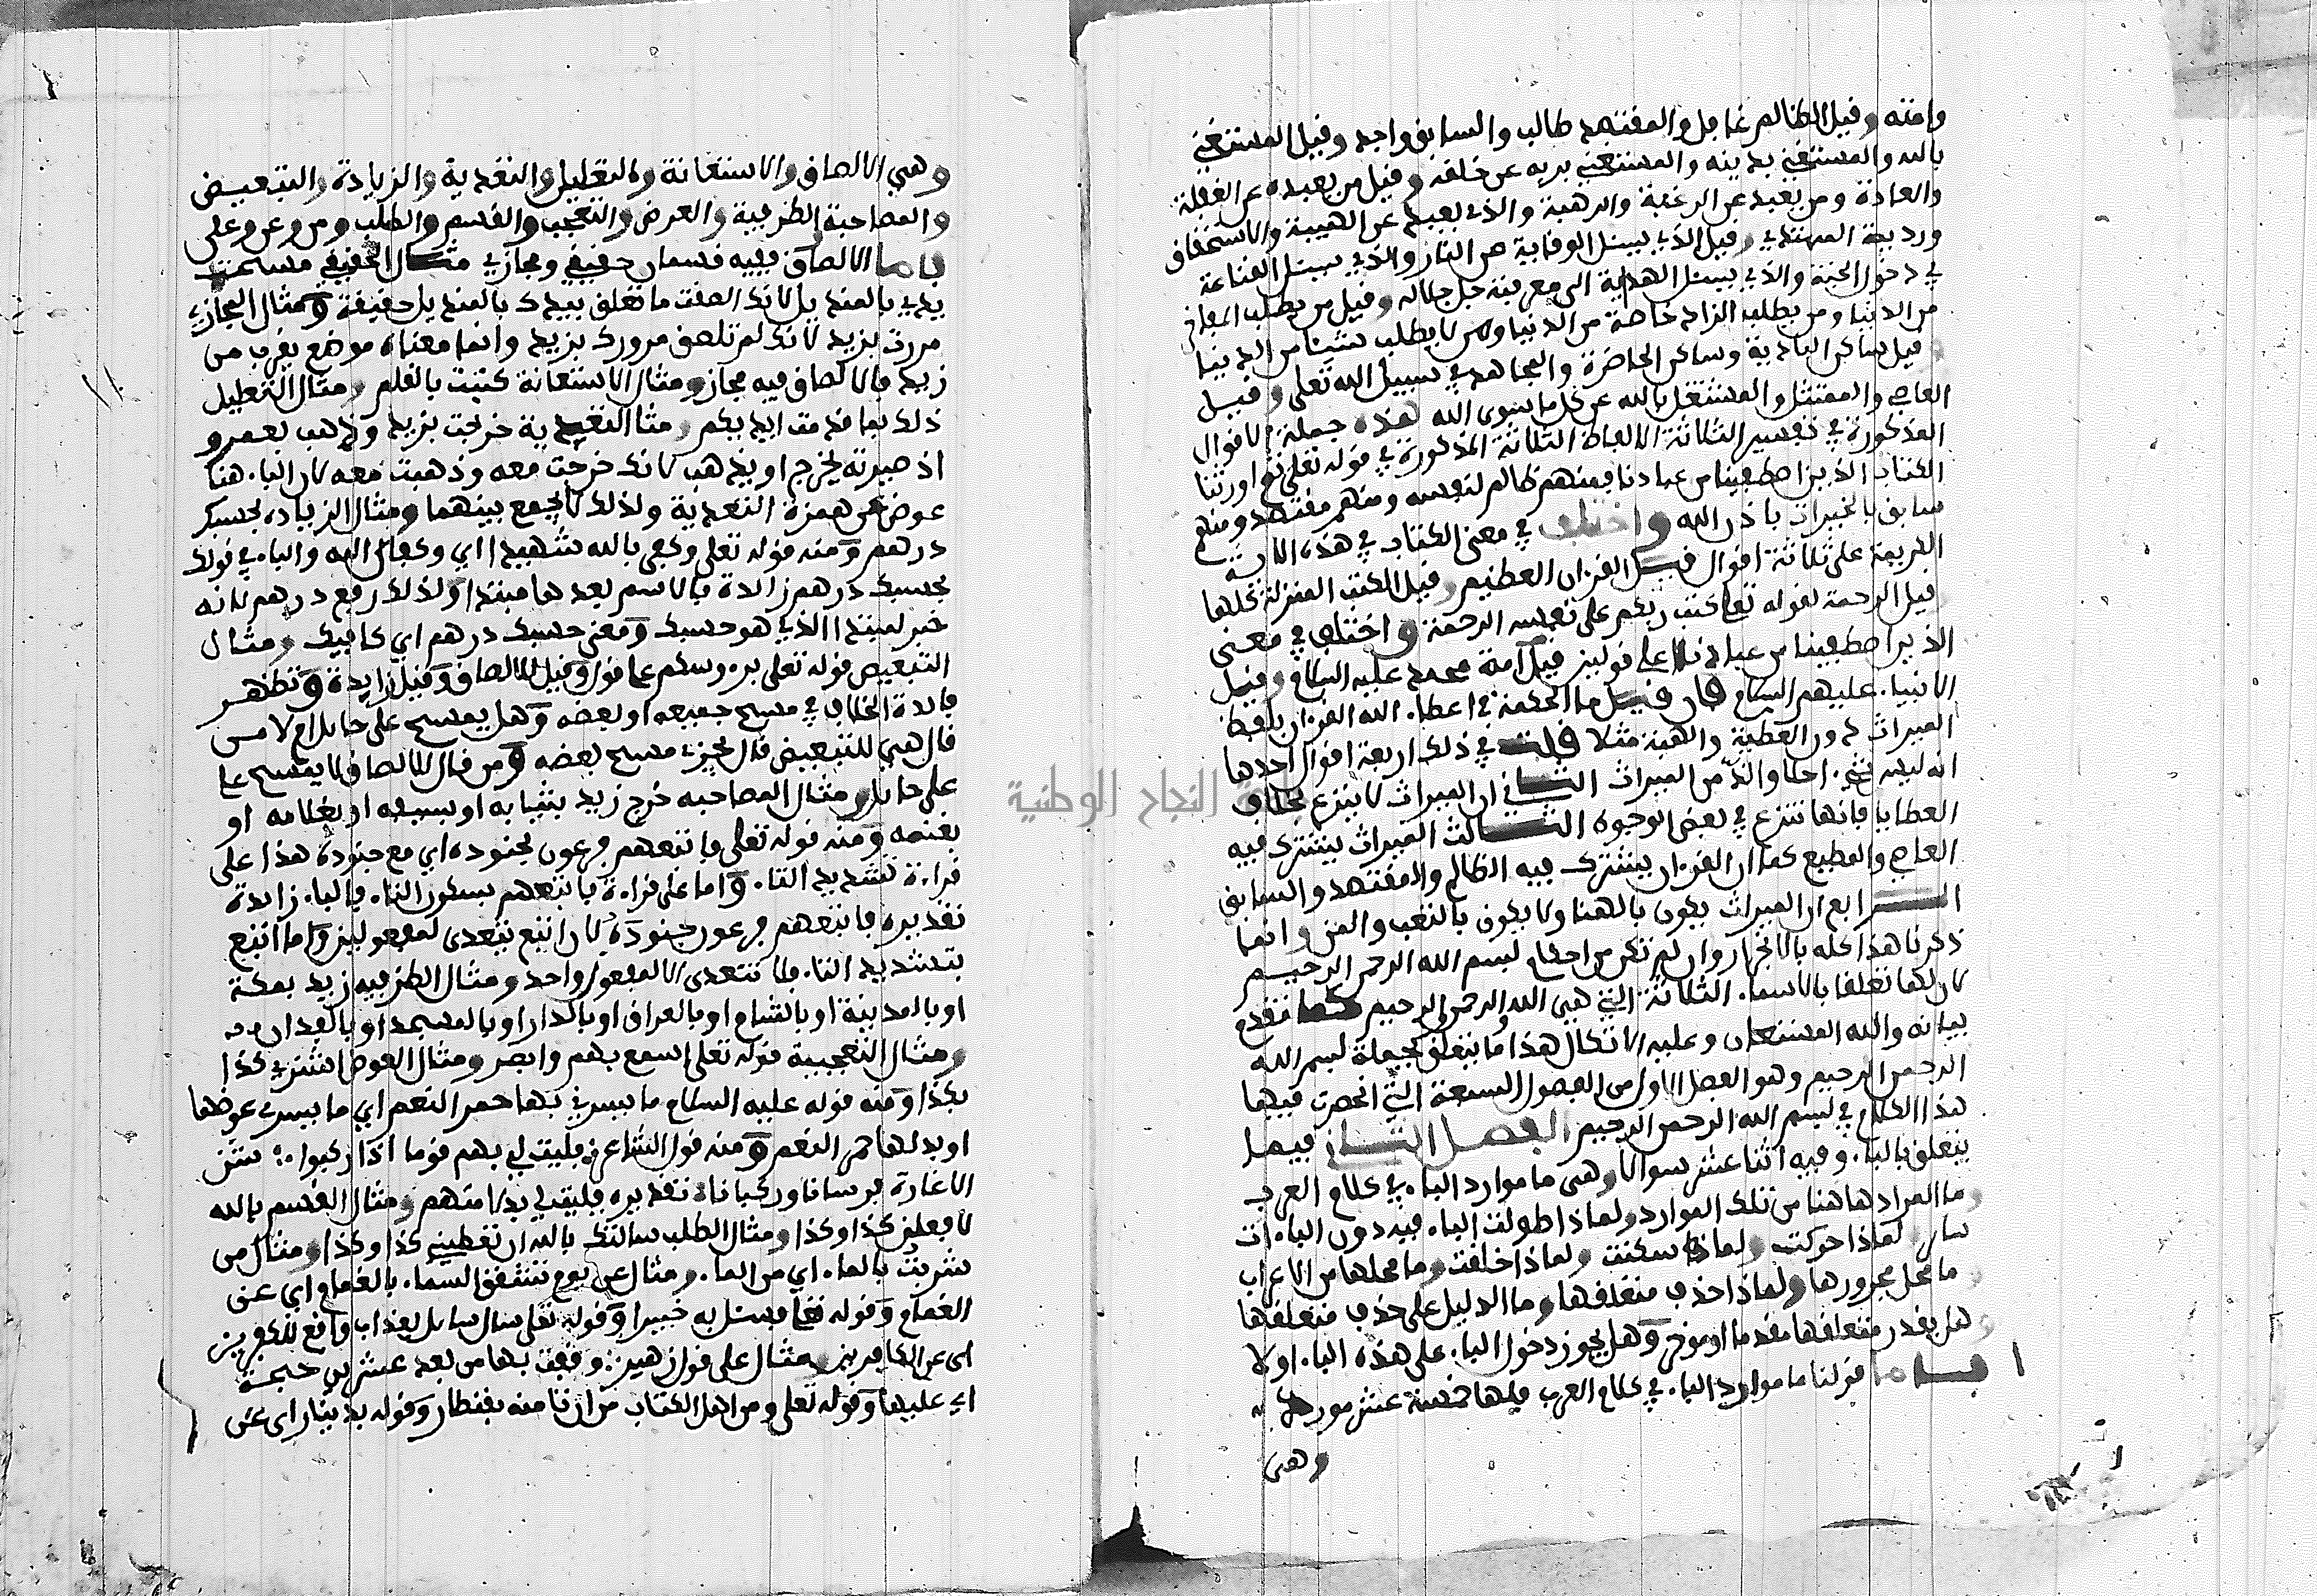 وامته وقيل الظالم غافل والمقتصد طالب والسابق واجد وقيل المستغني
بالله والمستغني بدينه والمستغني بربه عن خلقه وقيل من يعبده عن الغفلة
والعادة ومن يعبده عن الرغبة والرهبة والذي يعبده عن الهيبة والاستحقاق
ورديعة المهتدي وقيل الذي يسئل الوقاية من النار والذي يسئل القناعة
في دخول الجنة والذي يسئل الهداية الى معرفته جل جلاله وقيل من يطلب
من الدنيا ومن يطلب الزاد خاصة من الدنيا ومن لا يطلب شيئا من الدنيا
وقيل ساكن البادية وساكن الحاضرة والمجاهد في سبيل الله تعلى وقيل
العاصي والممتثل والمشتغل بالله عن كل ما سوى الله فهذه جملة الاقوال
المذكورة في تفسير الثلاثة الالفاظ الثلاثة المذكورة في قوله تعلى ثم اورثنا
الكتاب الذين اصطفينا من عبادنا فمنهم ظالم لنفسه ومنهم مقتصد ومنهم
سابق بالخيرات باذن الله واختلف في معنى الكتاب في هذه الاية
الكريمة على ثلاثة اقوال قيل القرءان العظيم وقيل الكتب المنزلة كلها
وقيل الرحمة لقوله تعلى كتب ربكم على نفسه الرحمة واختلف في معنى
الذين اصطفينا من عبادنا على قولين قيل امة محمد عليه السلام وقيل
الانبياء عليهم السلام فان قيل ما الحكمة في اعطاء الله القرءان بلفظ
الميراث دون العطية والهبة مثلا قلت في ذلك اربعة اقوال احدها
انه ليس شيء احلا والذ من الميراث الثاني ان الميراث لا ينزع بخلاف
العطايا فانها تنزع في بعض الوجوه الثالث الميراث يشترك فيه
العاصي والمطيع كما ان القرءان يشترك فيه الظالم والمقتصد والسابق
الرابع ان الميراث يكون بالهنا ولا يكون بالتعب والمن وانما
ذكرنا هذا كله بالانجرار وان لم تكن من احكام بسم الله الرحمن الرحيم
لان لهما تعلقا بالاسماء الثلاثة التي هي الله والرحمن والرحيم كما تقدم
بيانه والله المستعان وعليه الاتكال هذا ما يتعلق بجملة بسم الله
الرحمن الرحيم وهو الفصل الاول من الفصول السبعة التي انحصرت فيها
هذا الكلام في بسم الله الرحمن الرحيم الفصل الثاني فيما
يتعلق بالباء وفيه اثنا عشر سوالا وهي ما موارد الباء في كلام العرب
وما المراد هاهنا من تلك الموارد ولماذا طولت الباء فيه دون الباءات
ولماذا حركت ولماذا سكنت ولماذا خالفت وما محلها من الاعراب
وما محل مجرورها ولماذا حذف متعلقها وما الدليل على حذف متعلقها
وهل يقدر متعلقها مقدما او موخرا وهل يجوز دخول الباء على هذه الباء او لا
اما قولنا ما موارد الباء في كلام العرب فلها خمسة عشر موردا
وهي
وهي الالصاق والاستعانة والتعليل والتعدية والزيادة والتبعيض
والمصاحبة الظرفية والعوض والتعجب والقسم والطلب ومن وعن وعلى
فاما الالصاق ففيه قسمان حقيقي ومجازي مثال الحقيقي مسحت
يدي بالمنديل لانك الصقت ما تعلق بيدك بالمنديل حقيقة ومثال المجازي
مررت بزيد لانك لم تلصق مرورك بزيد وانما معناه موضع يقرب من
زيد فالالصاق فيه مجاز ومثال الاستعانة كتبت بالقلم ومثال التعليل
ذلك بما قدمت ايديكم ومثال التعدية خرجت بزيد وذهب بعمرو
اذ صيرته يخرج او يذهب لا انك خرجت معه وذهبت معه لان الباء هنا
عوض من همزة التعدية ولذلك لا يجمع بينهما ومثال الزيادة بحسبك
درهم ومنه قوله تعلى وكفى بالله شهيدا اي وكفى الله والباء في قولك
بحسبك درهم زائدة فالاسم بعدها مبتدا ولذلك رفع درهم لانه
خبر لمبتدا الذي هو حسبك ومعنى حسبك درهم اي كافيك ومثال
التبعيض قوله تعلى بروسكم على قول وقيل للالصاق وقيل زايدة وتظهر
فائدة الخلاف في مسح جميعه او بعضه وهل يمسح على حايل ام لا من
قال هي للتبعيض قال يجزي مسح بعضه ومن قال للالصاق لا يمسح على
على حايل ومثال المصاحبة خرج زيد بثيابه او بسيفه او بغلامه او
بغنمه ومنه قوله تعلى فاتبعهم فرعون بجنوده اي مع جنوده هذا على
قراءة تشديد التاء واما على قراءة فاتبعهم بسكون التاء فالباء زايدة
تقديره فاتبعهم فرعون جنوده لان اتبع يتعدى لمفعولين واما اتبع
بتشديد التاء فلا تتعدى الا لمفعول واحد ومثال الظرفية زيد بمكة
او بالمدينة او بالشام او بالعراق او بالدار او بالمسجد او بالفدان
ومثال التعجبية قوله تعلى اسمع بهم وابصر ومثال العوض اشتري كذا
بكذا ومنه قوله عليه السلام ما يسرني بها حمر النعم اي ما يسرني عوضها
او بدلها حمر النعم ومنه قول الشاعر فليت لي بهم قوما اذا ركبوا شنوا
الاغارة فرسانا وركبانا تقديره فليت لي بدلا منهم ومثال القسم بالله
لافعلن كذا وكذا ومثال الطلب سالتك بالله ان تعطيني كذا وكذا ومثال من
شربت بالماء اي من الماء ومثال عن يوم تشقق السماء بالغمام اي عن
الغمام وقوله تعلى فسئل به خبيرا وقوله تعلى سال سايل بعذاب واقع للكفرين
اي عن الكافرين ومثال على قول زهير وقفت بها من بعد عشرين حجة
اي عليها وقوله تعلى ومن اهل الكتاب من ان تامنه بقنطار وقوله بدينار اي على